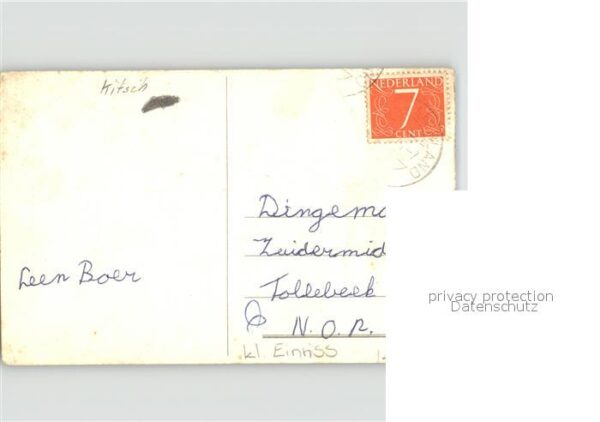 Kitsch
NEDERLAND
7
CENT
Leen Boer
Dingema
Zuidermid
Tollebeek
N.O.P.
kl Einriss
privacy protection
Datenschutz